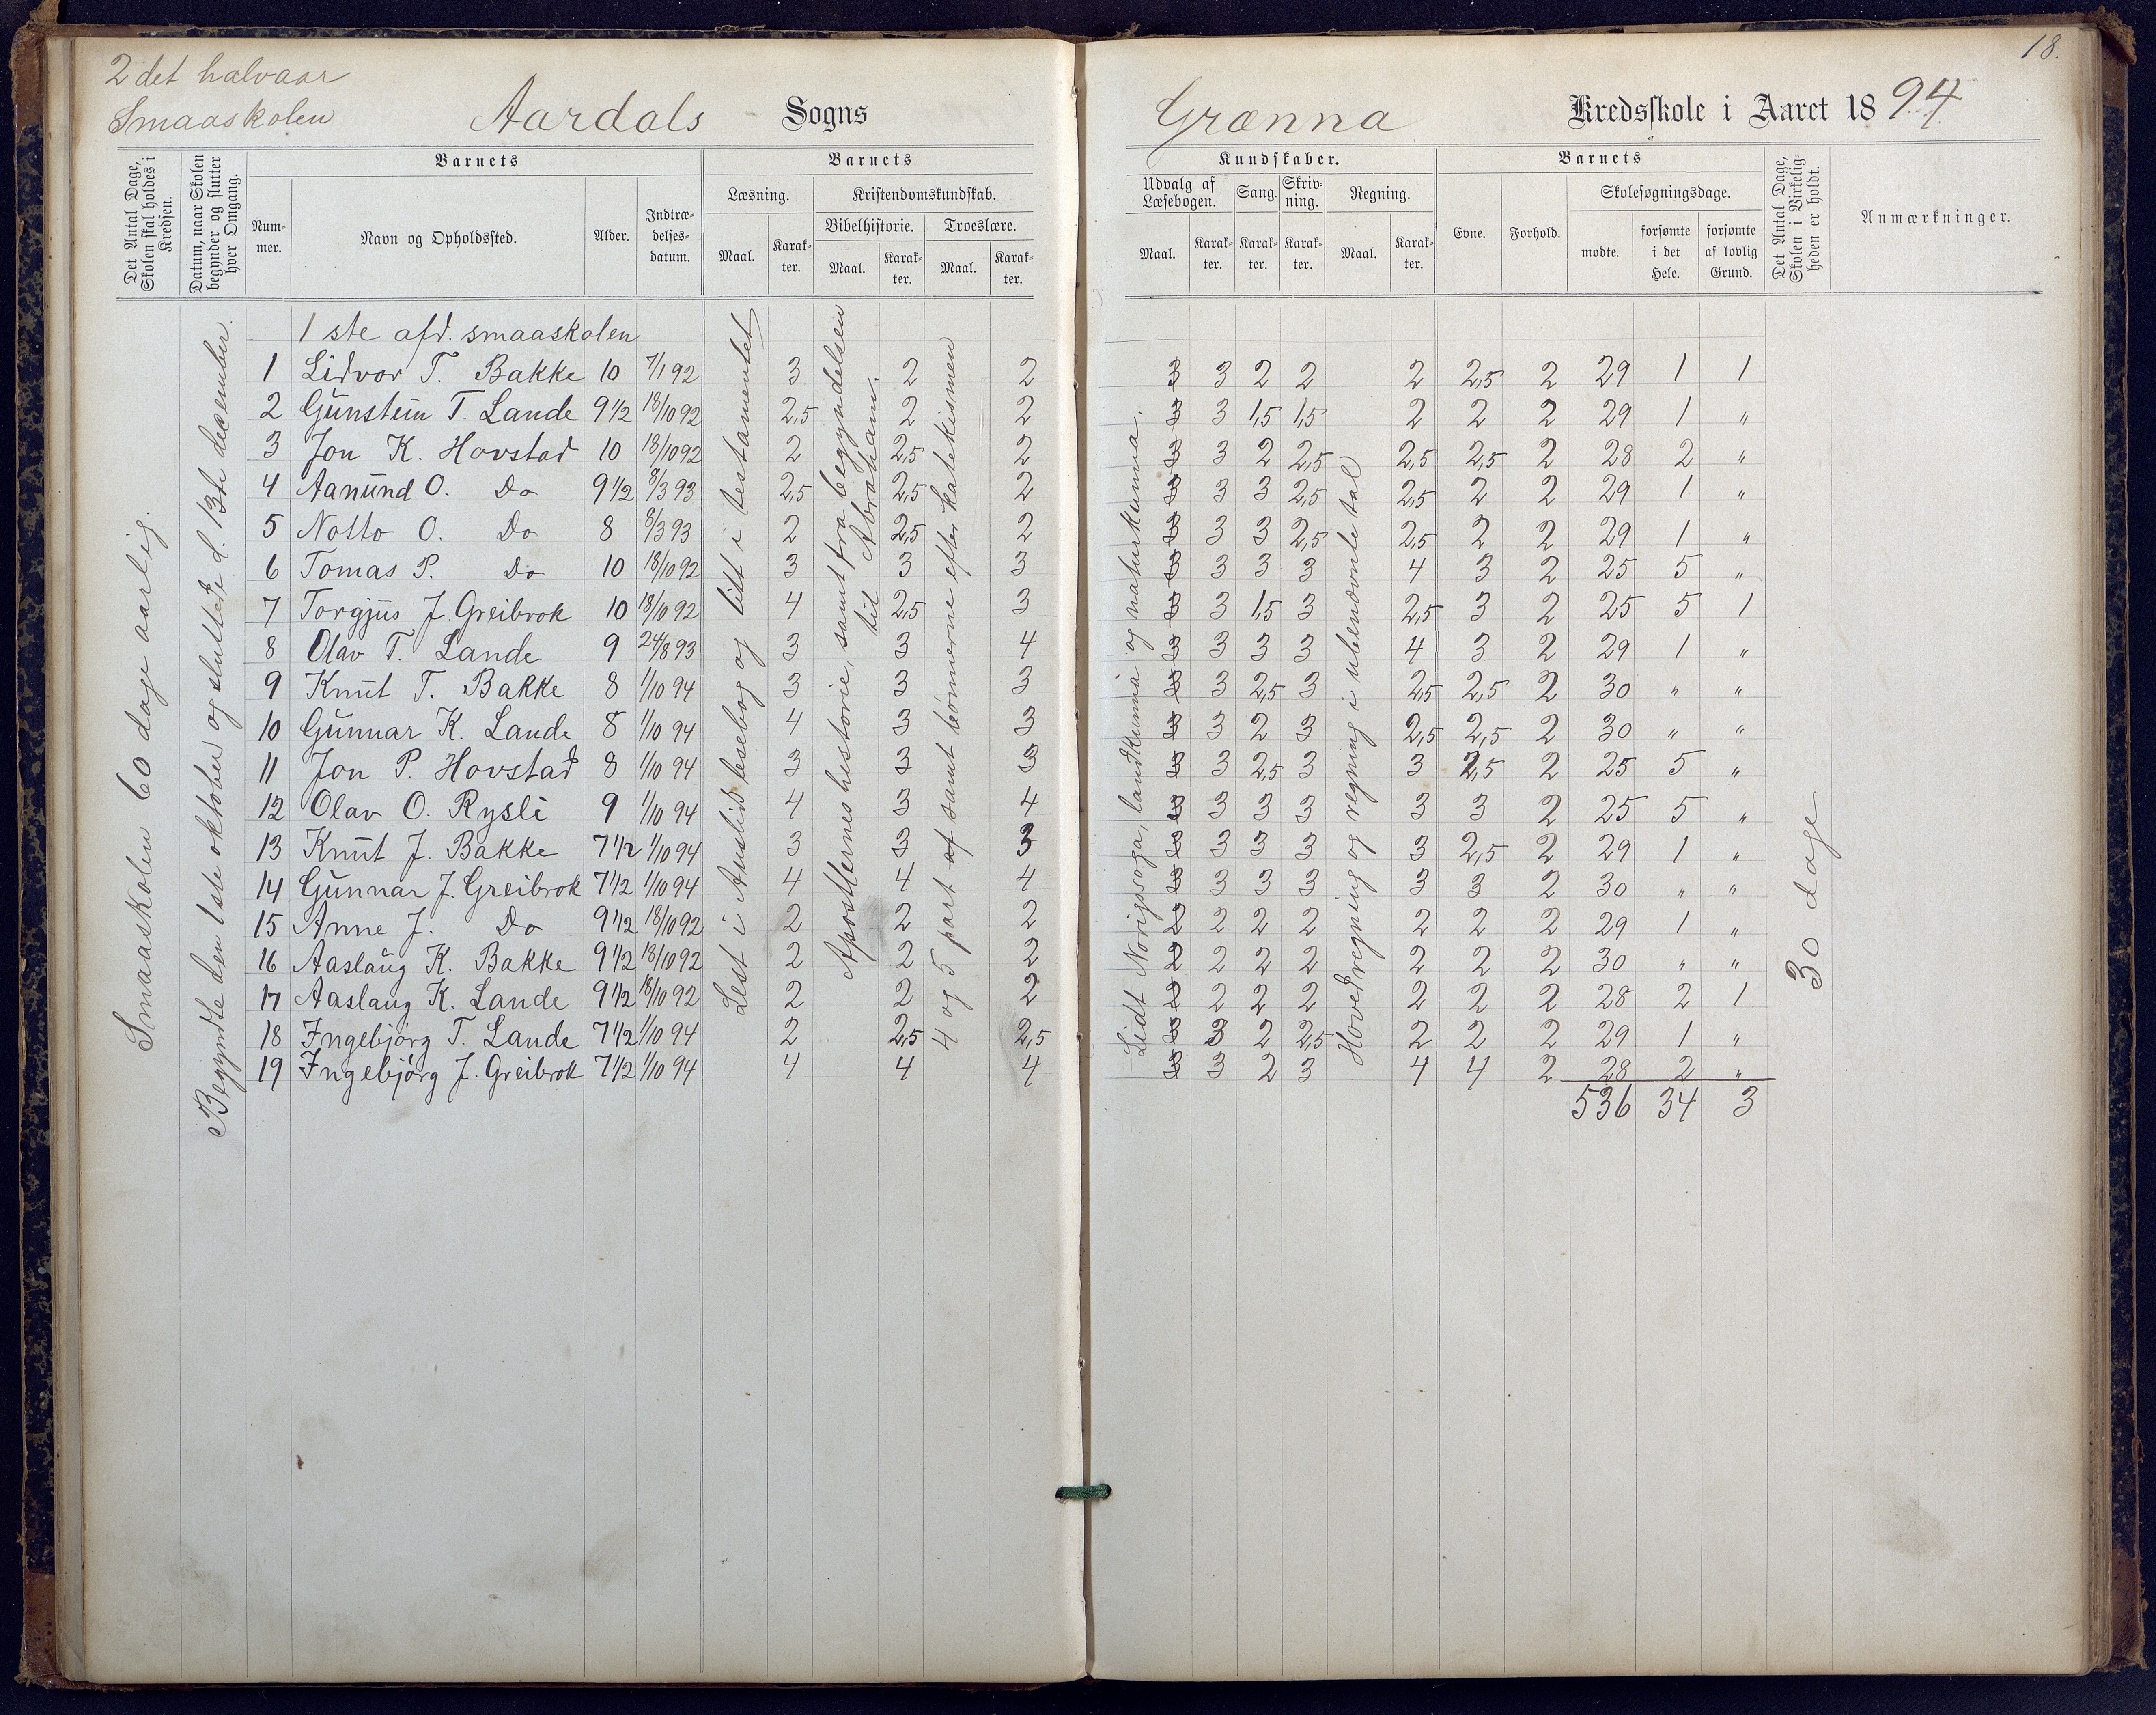 2det halvaar
Smaaskolen
Aardals Sogns
Grænna Kredsskole i Aaret 1894
18.
Det Antal Dage, Skolen skal holdes i Kredsen.
Datum, naar Skolen begynder og slutter hver Omgang.
Barnets
Barnets
Kundskaber.
Barnets
Det Antal Dage, Skolen i Virkeligheden er holdt.
Anmærkninger.
Nummer.
Navn og Opholdssted.
Alder.
Indtrædelsesdatum.
Læsning.
Kristendomskundskab.
Bibelhistorie.
Troeslære.
Maal.
Karakter.
Maal.
Karakter.
Maal.
Karakter.
Udvalg af Læsebogen.
Sang.
Skrivning.
Regning.
Maal.
Karakter.
Karakter.
Karakter.
Maal.
Karakter.
Evne.
Forhold.
Skolesøgningsdage.
mødte.
forsømte i det Hele.
forsømte af lovlig Grund.
Smaaskolen 60 dage aarlig.
Begyndte den 1ste oktober og sluttede d. 13de december.
Lest i Austlid lesebog og litt i testamentet
Apostlernes historie, samt fra begyndelsen til Abraham.
4 og 5 part af samt bönnerne efter katekismen
Lidt Norigssoga, landkunna og naturkunna.
Hovedregning og regning i ubenævnte tal
30 dage
1ste afd. smaaskolen
1 Lidvor T. Bakke 10 7/1 92 3 2 2 3 3 2 2 2 2,5 2 29 1 1
2 Gunstein T. Lande 9 1/2 18/10 92 2,5 2 2 3 3 1,5 1,5 2 2 2 29 1 "
3 Jon K. Hovstad 10 18/10 92 2 2,5 2 3 3 2 2,5 2,5 2,5 2 28 2 "
4 Aanund O. Do 9 1/2 8/3 93 2,5 2,5 2 3 3 3 2,5 2,5 2 2 29 1 "
5 Notto O. Do 8 8/3 93 2 2,5 2 3 3 3 2,5 2,5 2 2 29 1 "
6 Tomas P. Do 10 18/10 92 3 3 3 3 3 3 3 4 3 2 25 5 "
7 Torgjus J. Greibrok 10 18/10 92 4 2,5 3 3 3 1,5 3 2,5 3 2 25 5 1
8 Olav T. Lande 9 24/8 93 3 3 4 3 3 3 3 4 3 2 29 1 "
9 Knut T. Bakke 8 1/10 94 3 3 3 3 3 2,5 3 2,5 2,5 2 30 " "
10 Gunnar K. Lande 8 1/10 94 4 3 3 3 3 2 3 2,5 2,5 2 30 " "
11 Jon P. Hovstad 8 1/10 94 3 3 3 3 3 2,5 3 3 2,5 2 25 5 "
12 Olav O. Rysli 9 1/10 94 4 3 4 3 3 3 3 3 3 2 25 5 "
13 Knut J. Bakke 7 1/2 1/10 94 3 3 3 3 3 3 3 3 2,5 2 29 1 "
14 Gunnar J. Greibrok 7 1/2 1/10 94 4 4 4 3 3 3 3 3 3 2 30 " "
15 Anne J. Do 9 1/2 18/10 92 2 2 2 2 2 2 2 2 2 2 29 1 "
16 Aaslaug K. Bakke 9 1/2 18/10 92 2 2 2 2 2 2 2 2 2 2 30 " "
17 Aaslaug K. Lande 9 1/2 18/10 92 2 2 2 2 2 2 2 2 2 2 28 2 1
18 Ingebjörg T. Lande 7 1/2 1/10 94 2 2,5 2,5 3 3 2 2,5 2 2 2 29 1 "
19 Ingebjörg J. Greibrok 7 1/2 1/10 94 4 4 4 3 3 2 3 4 4 2 28 2 "
536 34 3